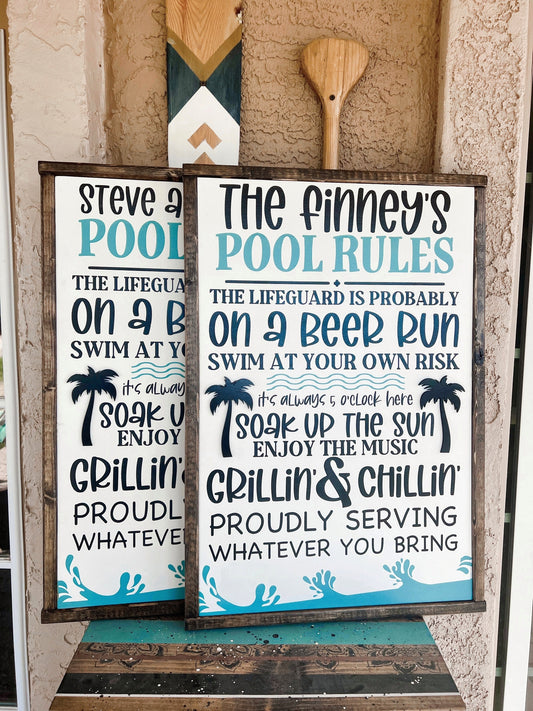 Steve a
POOL
THE LIFEGUA
on a B
SWIM AT Y
it's alway
Soak u
ENJOY
GRillin'
PROUDL
WHATEVE
The Finney's
POOL RULES
THE LIFEGUARD IS PROBABLY
on a BeeR Run
SWIM AT YOUR OWN RISK
it's always 5 o'clock here
Soak up the Sun
ENJOY THE MUSIC
GRillin' & Chillin'
PROUDLY SERVING
WHATEVER YOU BRING